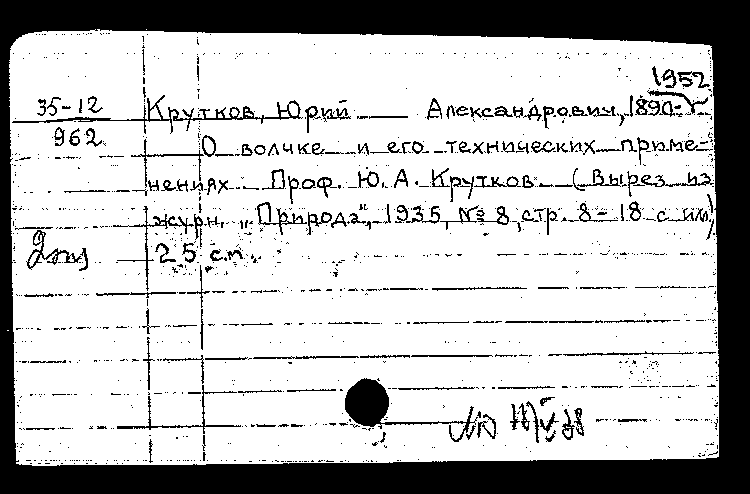 1952
35-12 Крутков, Юрий Александрович, 1890-
962 О волчке и его технических приме-
нениях Проф. Ю. А. Крутков (Вырез из
журн. „Природа", 1935, № 8, стр. 8-18 с ил)
2 экз 25 с.м.